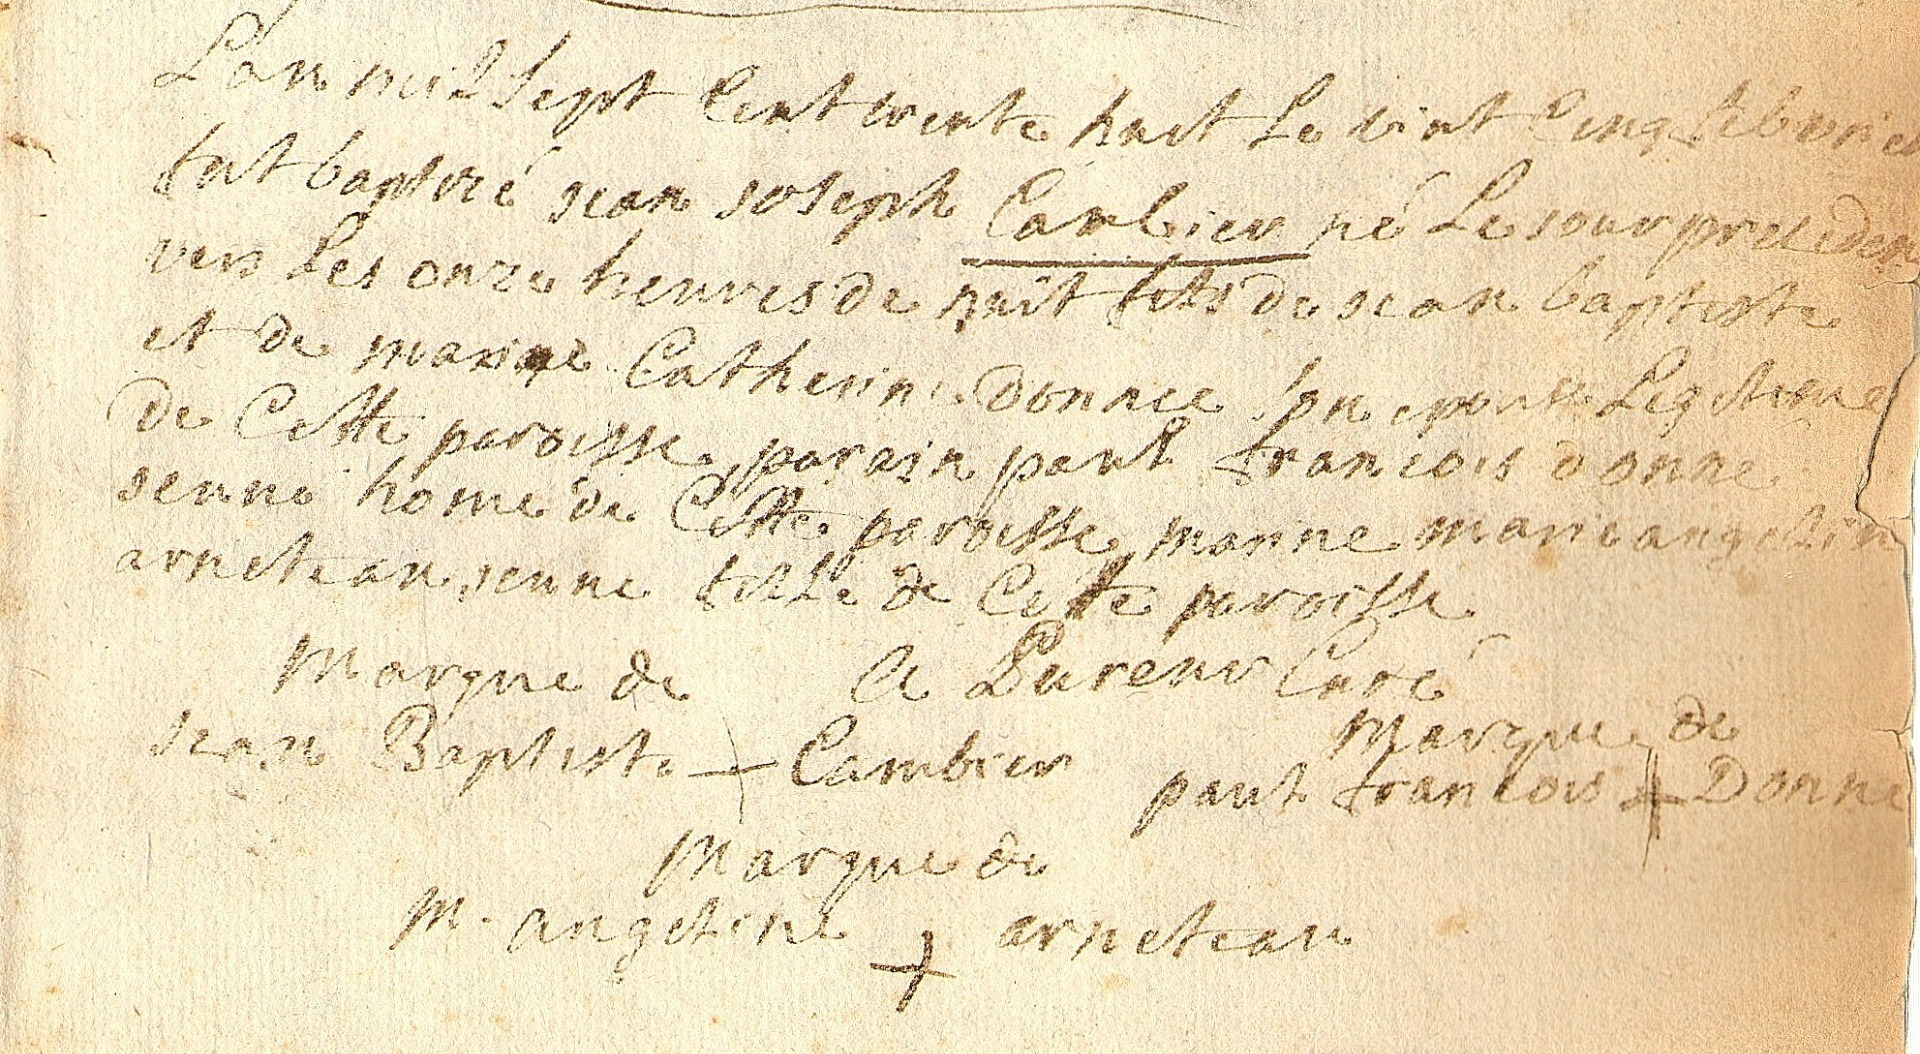 L'an mil sept cent trente huit le vint cinq febvrier
fut baptizé jean joseph Cambier né le jour precedent
vers les onze heures de nuit fils de jean baptiste
et de marie Catherine Donnee son epouse Legitime
de Cette paroisse, parain paul francois donne
jeune home de Cette paroisse, marine marie angelin
arneteau, jeune fille de Cette paroisse
Marque de A Durenv Curé
jean Baptiste + Cambier
Marque de
paul francois + Donne
Marque de
M. angeline + arneteau